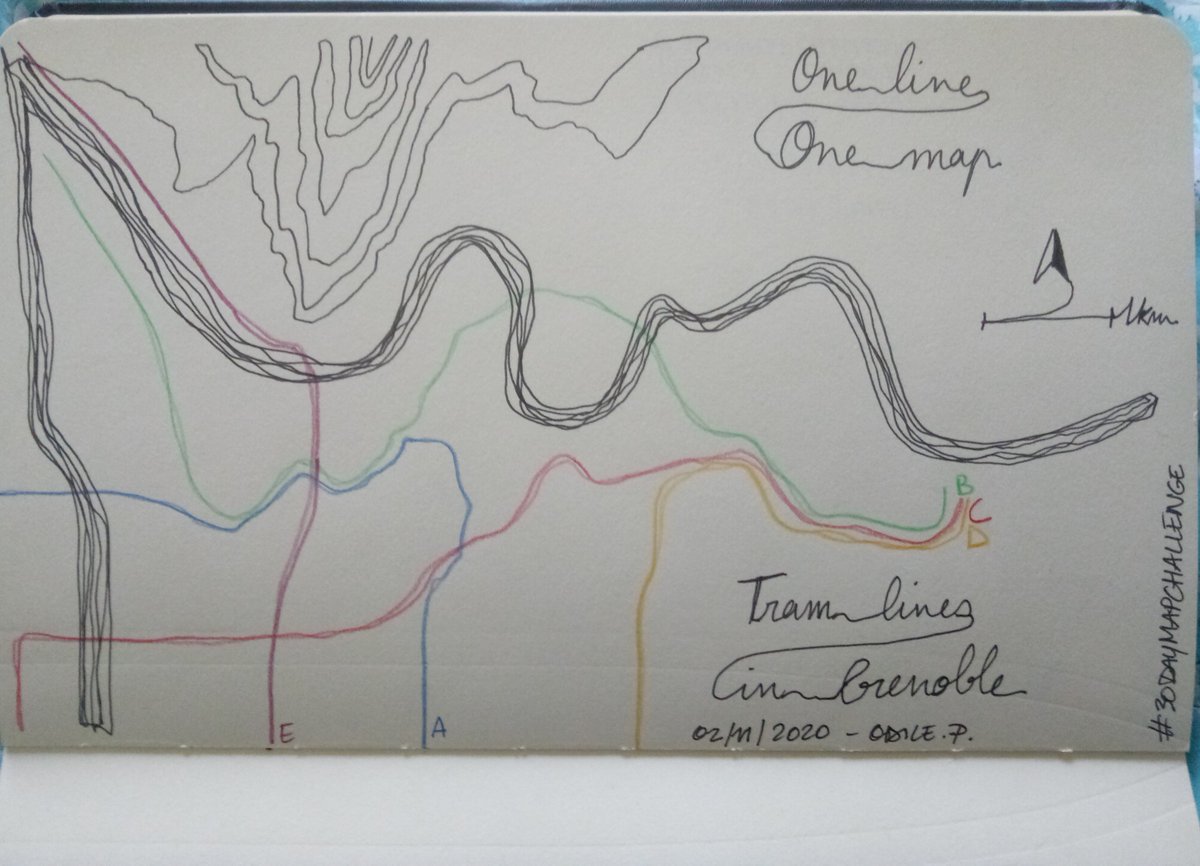 One line
One map
1km
B
C
D
Tram lines
in Grenoble
E
A
02/11/2020 - ODILE.P.
#30DAYMAPCHALLENGE